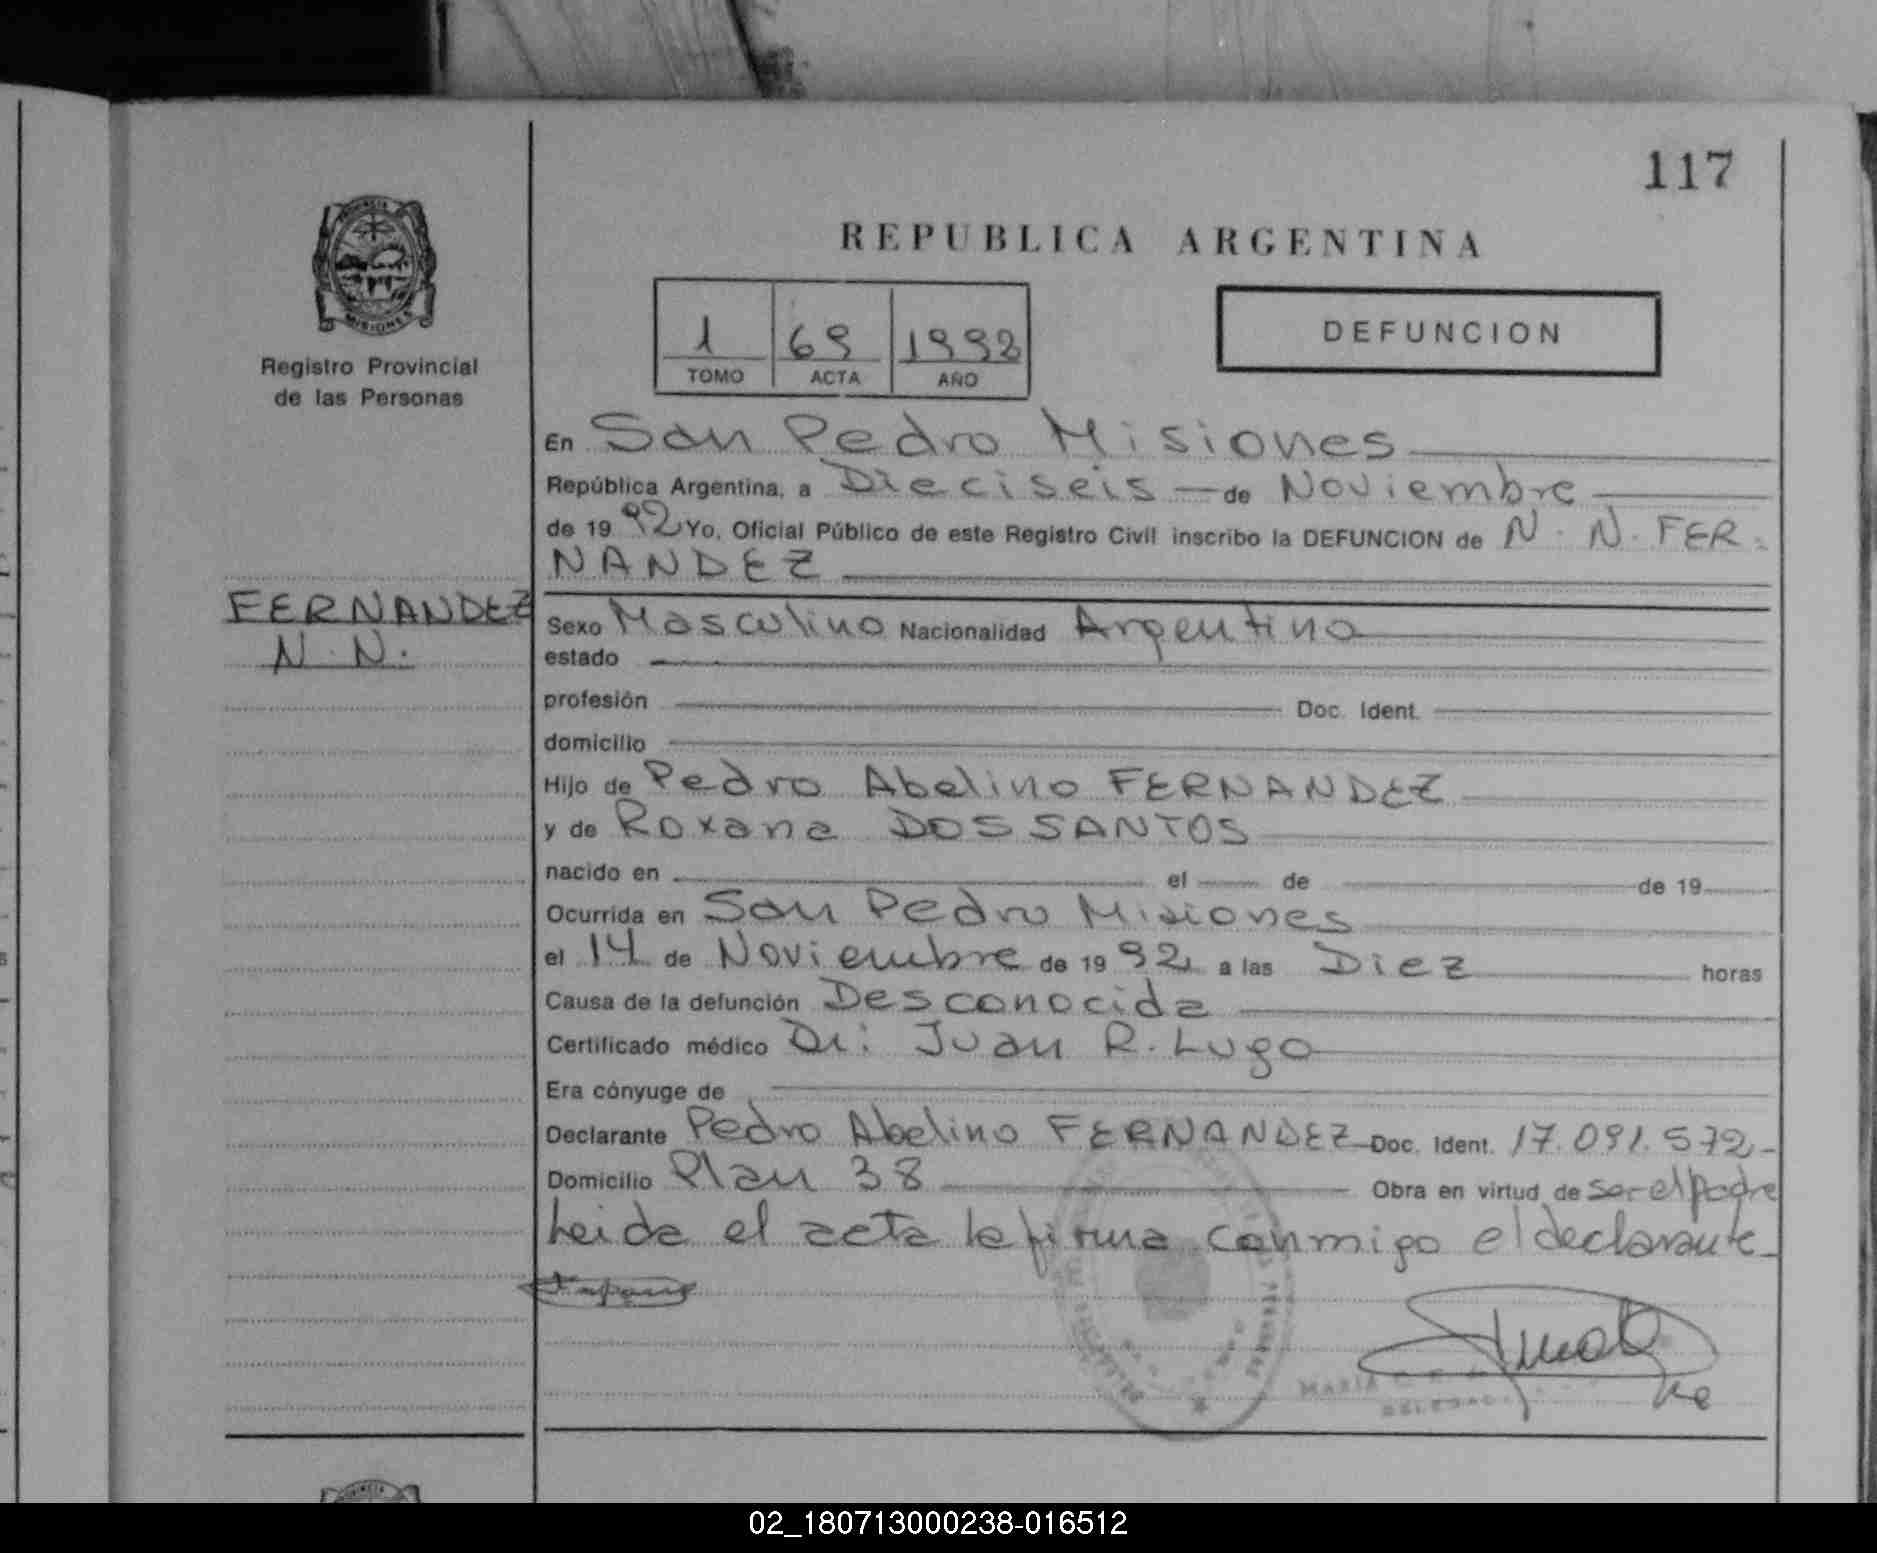 117
PROVINCIA
MISIONES
Registro Provincial
de las Personas
REPUBLICA ARGENTINA
1 69 1992
TOMO ACTA AÑO
DEFUNCION
En San Pedro Misiones
República Argentina, a Dieciseis de Noviembre
de 1992 Yo, Oficial Público de este Registro Civil inscribo la DEFUNCION de N. N. FER-
NANDEZ
FERNANDEZ
N. N.
Sexo Masculino Nacionalidad Argentina
estado
profesión Doc. Ident.
domicilio
Hijo de Pedro Abelino FERNANDEZ
y de Roxana DOS SANTOS
nacido en el de de 19
Ocurrida en San Pedro Misiones
el 14 de Noviembre de 1992 a las Diez horas
Causa de la defunción Desconocida
Certificado médico Dr: Juan R. Lugo
Era cónyuge de
Declarante Pedro Abelino FERNANDEZ Doc. Ident. 17.091.572
Domicilio Plan 38 Obra en virtud de ser el padre
Leida el acta la firma conmigo el declarante
MARIA
02_180713000238-016512